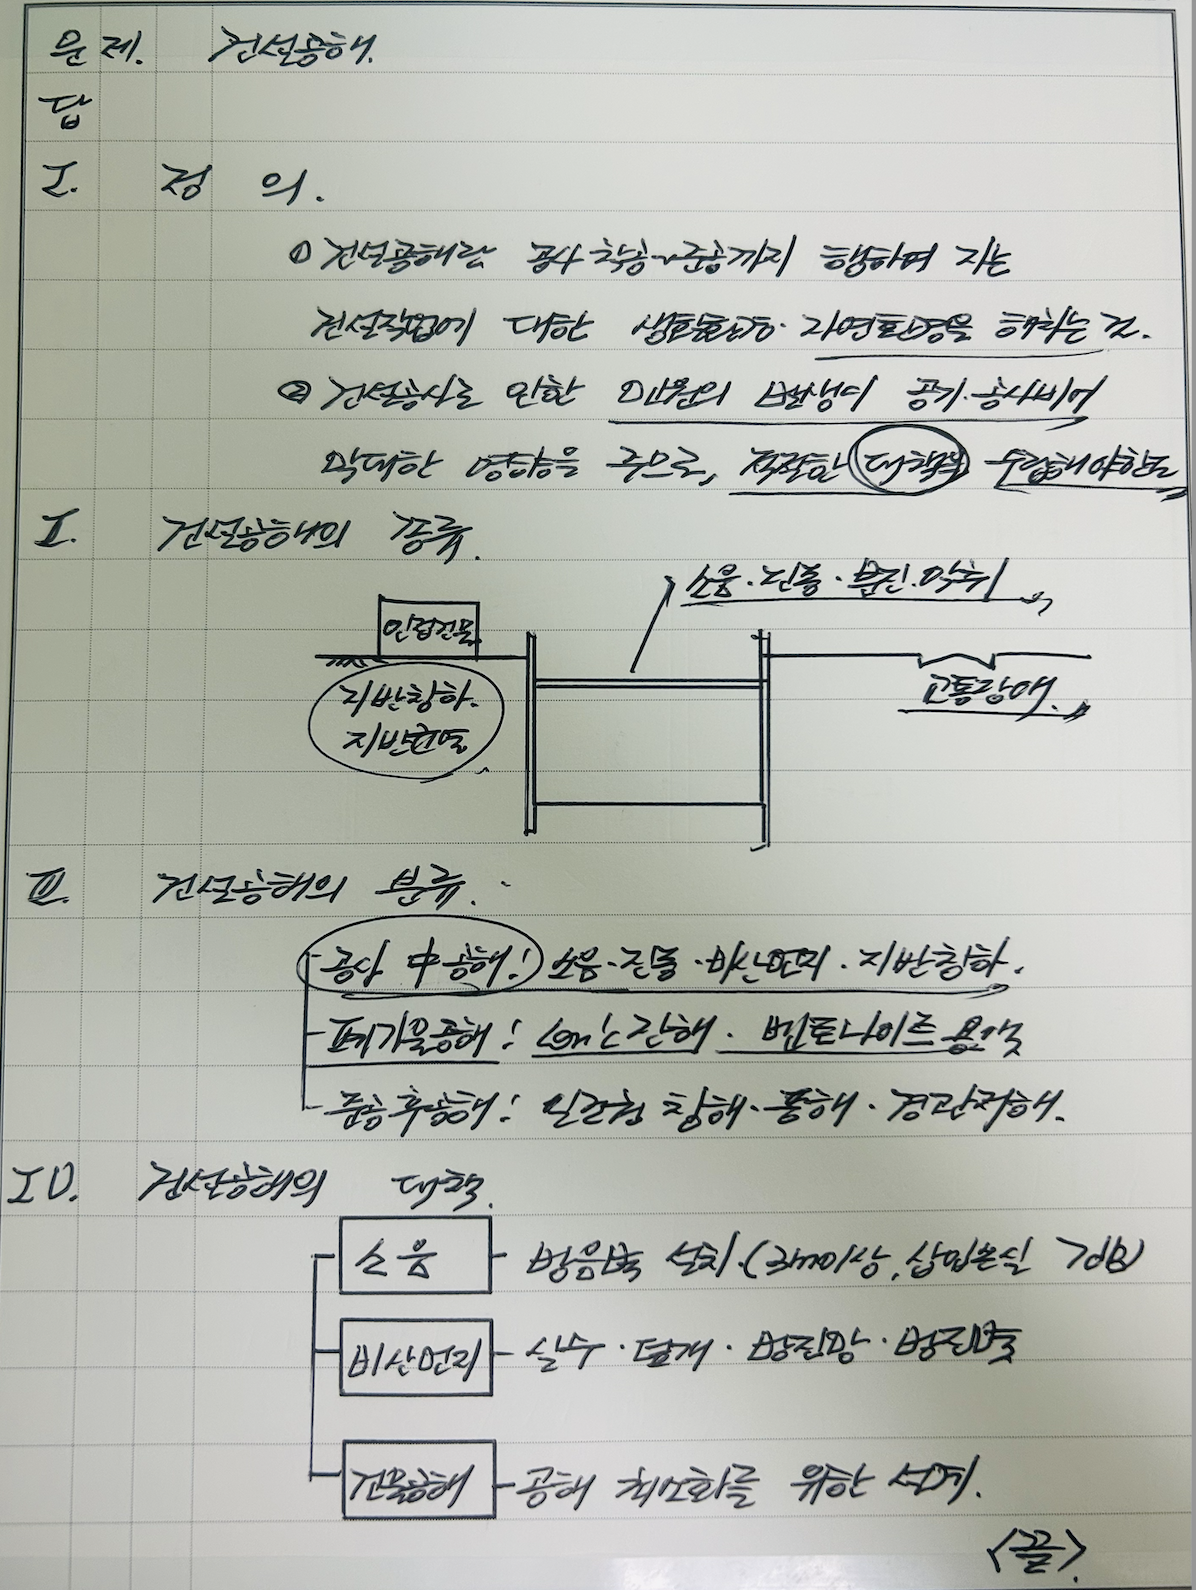 문제. 건설공해.
답
I. 정 의.
① 건설공해란 공사 착공~준공까지 행하여 지는
건설작업에 대한 생활환경·자연환경을 해치는 것.
② 건설공사로 인한 민원의 발생이 공기·공사비에
막대한 영향을 주므로, 적절한 대책을 수립해야한다
II. 건설공해의 종류.
소음·진동·분진·악취
인접건물
지반침하.
지반균열
교통장애.
III. 건설공해의 분류.
공사 中 공해: 소음·진동·비산먼지·지반침하.
폐기물공해: 잔해·벤토나이트 용액
준공후공해: 일조권 침해·풍해·경관저해.
IV. 건설공해의 대책.
소음 - 방음벽 설치.(3m이상, 삽입손실 7dB)
비산먼지 - 살수·덮개·방진망·방진벽
건물공해 - 공해 최소화를 위한 설계.
<끝>.